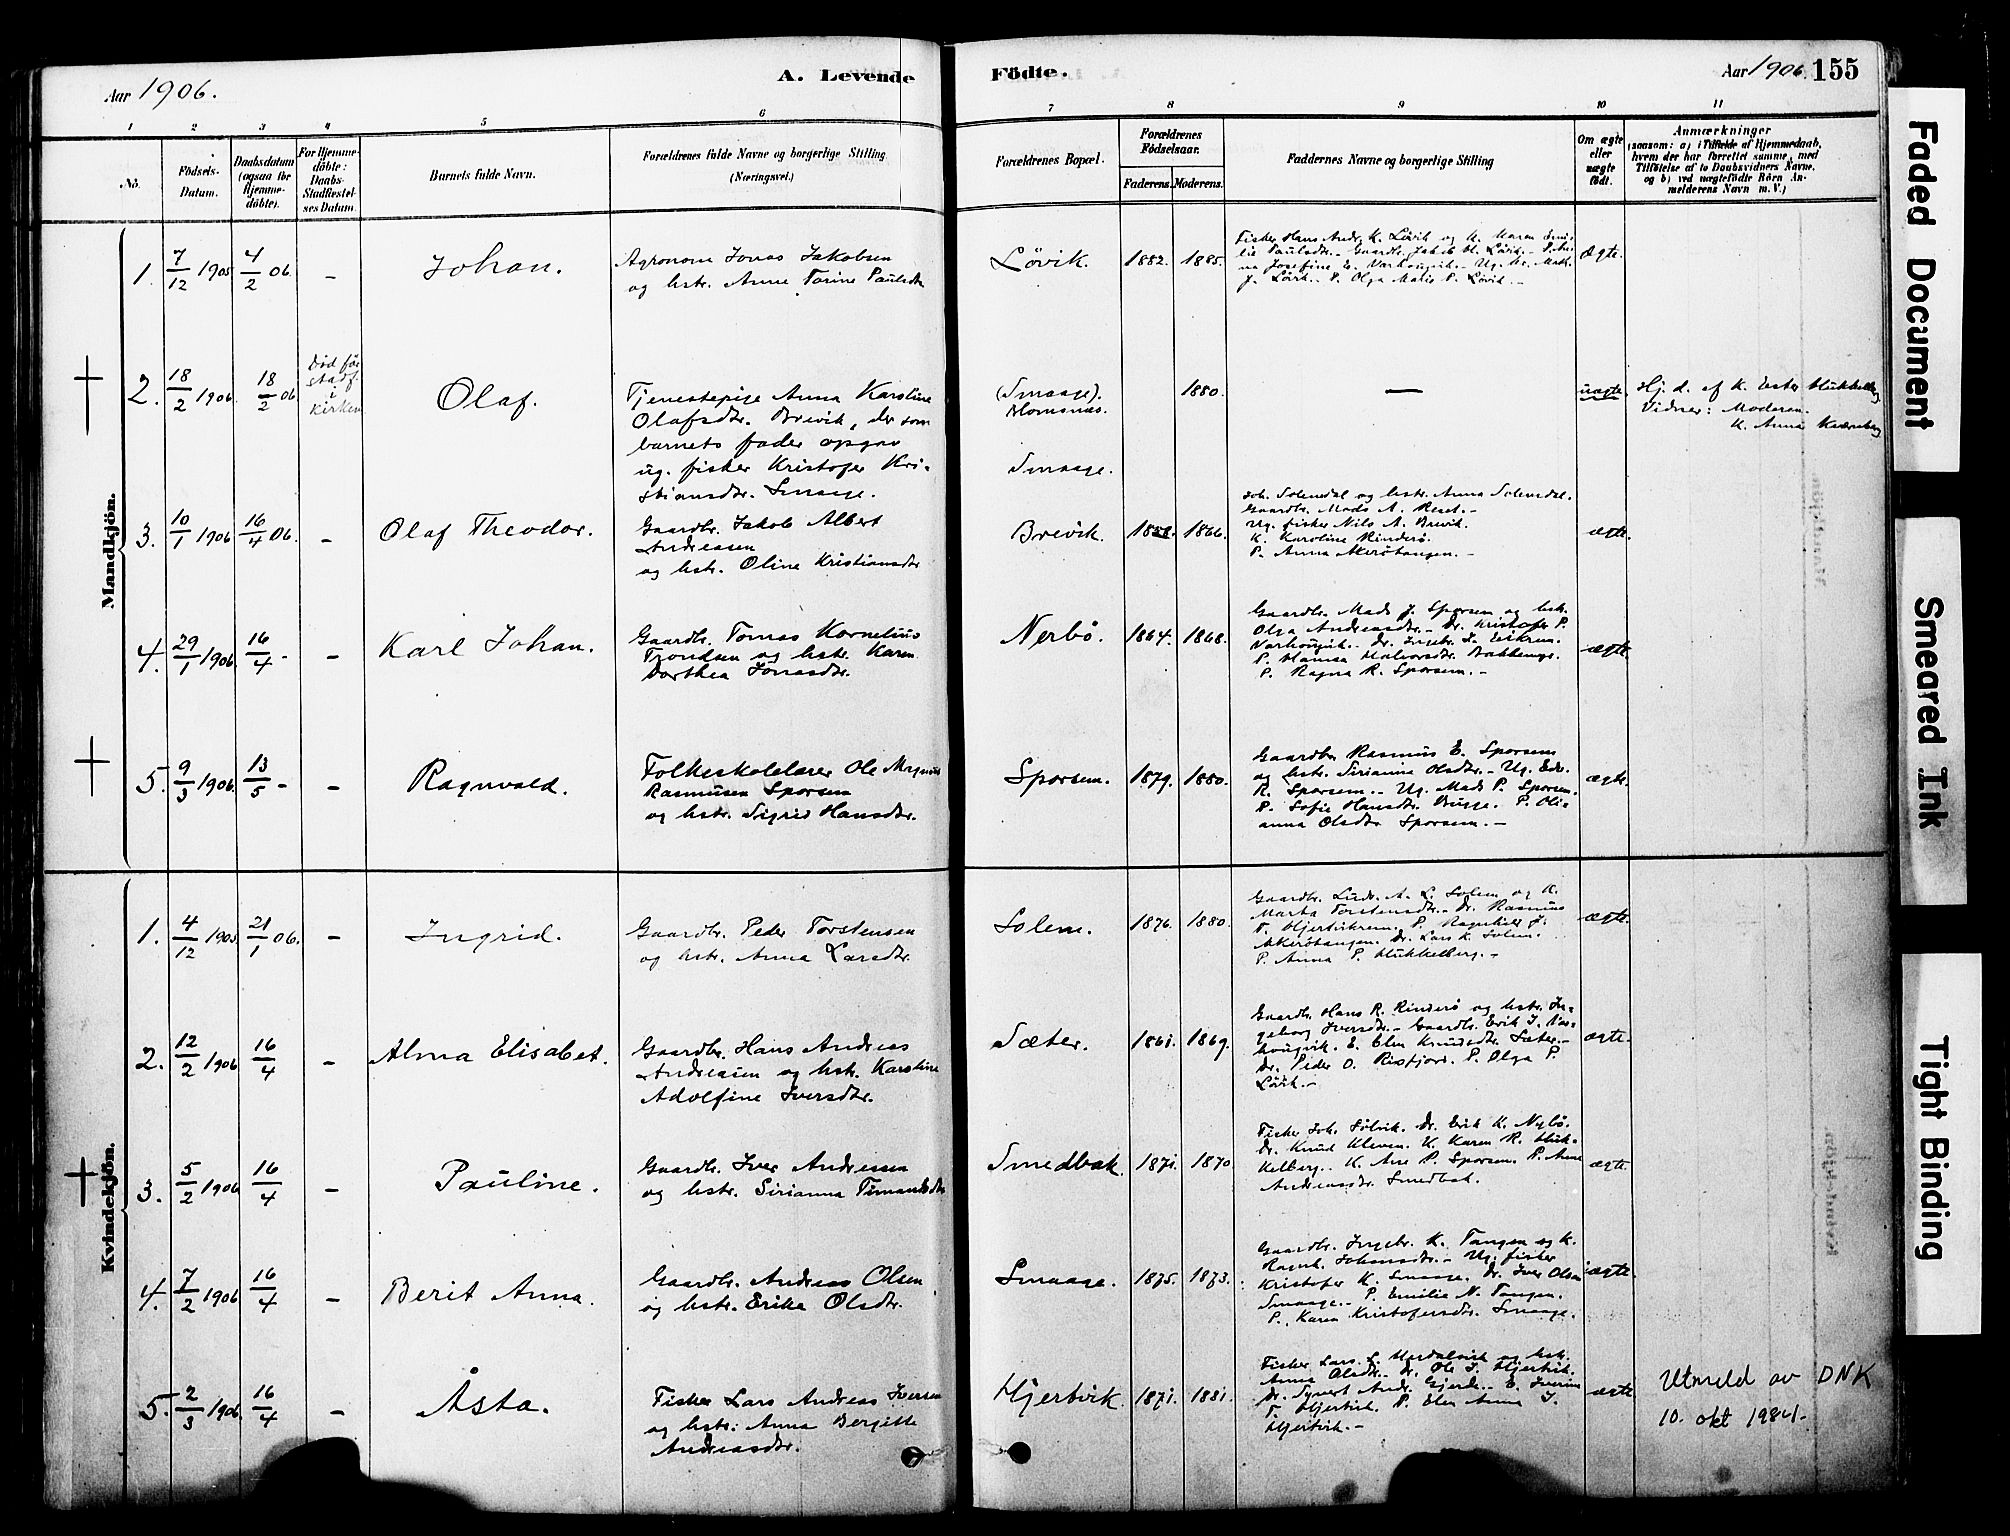 Aar 1906.
A. Levende
Födte.
Aar 1906. 155
1 2 3 4 5 6 7 8 9 10 11
No.
Födsels-Datum.
Daabsdatum (ogsaa for Hjemme-döbte).
For Hjemme-döbte: Daabs-Stadfæstel-ses Datum.
Barnets fulde Navn.
Forældrenes fulde Navne og borgerlige Stilling (Næringsvei.)
Forældrenes Bopæl.
Forældrenes Födselsaar.
Faderens. Moderens.
Faddernes Navne og borgerlige Stilling
Om ægte eller uægte födt.
Anmærkninger
(saasom: a) i Tilfælde af Hjemmedaab,
hvem der har forrettet samme, med
Tilföielse af to Daabsvidners Navne,
og b) ved uægtefödte Börn An-
melderens Navn m. V.)
Mandkjön.
1. 7/12 1905 4/2 06. - Johan.
Agronom Jonas Jakobsen
og hstr. Anne Torine Paulsdtr
Lövik. 1882. 1885.
Fisker Hans Andr. K. Lövik og K. Maren Emi-
lie Paulsdtr. - Gaardbr. Jakob M. Lövik. -
J. Lövik. - P. Olga Marie P. Lövik. -
Ægte.
2. 18/2 1906. 18/2 06
Död för
stadf.
i
Kirken
Olaf.
Tjenestepige Anna Karoline
Olafsdtr. Brevik, der som
barnets fader opgav
ug. fisker Kristofer Kri-
stiansdtr. Smaage.
(Smaage).
Homsnes.
Smaage.
1880.
—
uægte.
Hj. d. af K. Ester Hukkelberg
Vidner: Moderen.
K. Anna Kværnberg
3. 10/1 1906 16/4 06. - Olaf Theodor.
Gaardbr. Jakob Albert
Andreasen
og hstr. Oline Kristiansdtr
Brevik. 1858. 1866.
Joh. Solemdal og hstr. Anna Solemdal.
Gaardbr. Mads A. Reset. -
Ug. fisker Nils A. Brevik.
K. Karoline Rinderö.
P. Anna Akeröhaugen. -
ægte.
4. 29/1 1906. 16/4 - - Karl Johan.
Gaardbr. Tomas Kornelius
Trondsen og hstr. Karen
Dorthea Jonasdtr.
Nerbö. 1864. 1868.
Gaardbr. Mads J. Sporsem og hstr.
Olga Andreasdtr. - Dr. Kristofer P.
Varhougvik. - Dr. Ingebr. L. Eikrem.
P. Hansa Halvorsdtr. Bakkenge.
P. Ragna R. Sporsem. -
ægte.
5. 9/3 1906. 13/5 - - Ragnvald.
Folkeskolelærer Ole Magnus
Rasmussen Sporsem
og hstr. Sigrid Hansdtr.
Sporsem. 1879. 1880.
Gaardbr Rasmus E. Sporsem
og hstr. Sirianna Olsdtr. - Ug. Edv.
R. Sporsem. - Ug. Mads P. Sporsem.
P. Sofie Hansdtr. Bugge. P. Oli-
anna Olsdtr Sporsem. -
ægte.
Kvindekjön.
1. 4/12 1905 21/1 06. - Ingrid.
Gaardbr. Peder Torstensen
og hstr. Anna Larsdtr.
Solem. 1876. 1880.
Gaardbr. Ludv. A. L. Solem og K.
Marta Torstensdtr. - Dr. Rasmus
T. Hjertvikrem. P. Ragnhild J.
Akeröhaugen. Dr. Lars K. Solem.
P. Anna P. Hukkelberg. -
ægte.
2. 12/2 1906 16/4 - Alma Elisabet.
Gaardbr. Hans Andreas
Andreasen og hstr. Karoline
Adolfine Iversdtr.
Sæter. 1861. 1869.
Gaardbr. Hans R. Rinderö og hstr. In-
geborg Iversdtr. - Gaardbr. Erik J. Var-
hougvik. E. Elen Knudsdtr. Sæter. -
Dr. Peder O. Risfjord. P. Olga P.
Lövik. -
ægte.
3. 5/2 1906 16/4 - Pauline.
Gaardbr. Iver Andresen
og hstr. Sirianna Timandsdtr
Smedbak. 1871. 1870
Fisker Joh. Sölvik. Dr. Erik K. Nerbö.
Dr. Knud Kleven. K. Karen R. Huk-
kelberg. K. Ane P. Sporsem. P. Anne
Andreasdtr Smedbak.
ægte.
4. 7/2 1906 16/4 - Berit Anna.
Gaardbr. Andreas Olsen
og hstr. Erika Olsdtr.
Smaage. 1875. 1873.
Gaardbr. Ingebr. K. Tangen og K.
Ragnh. Johansdtr. - Ug. fisker
Kristofer K. Smaage. Dr. Iver Olsen
Smaage. - P. Emilie N. Tangen.
P. Karen Kristofersdtr. Smaage.
ægte.
5. 2/3 1906. 16/4 - Åsta.
Fisker Lars Andreas Iversen
og hstr. Anna Bergitte
Andreasdtr.
Hjertvik. 1871. 1881.
Anna Olsdtr. - Dr. Ole J. Hjertvik.
Dr. Synert Andr. Gjerde. - E. Iverine
T. Hjertvik. P. Elen Anna I.
Hjertvik. -
ægte
Utmeld av DNK
10. okt 1984.
Faded Document
Smeared Ink
Tight Binding